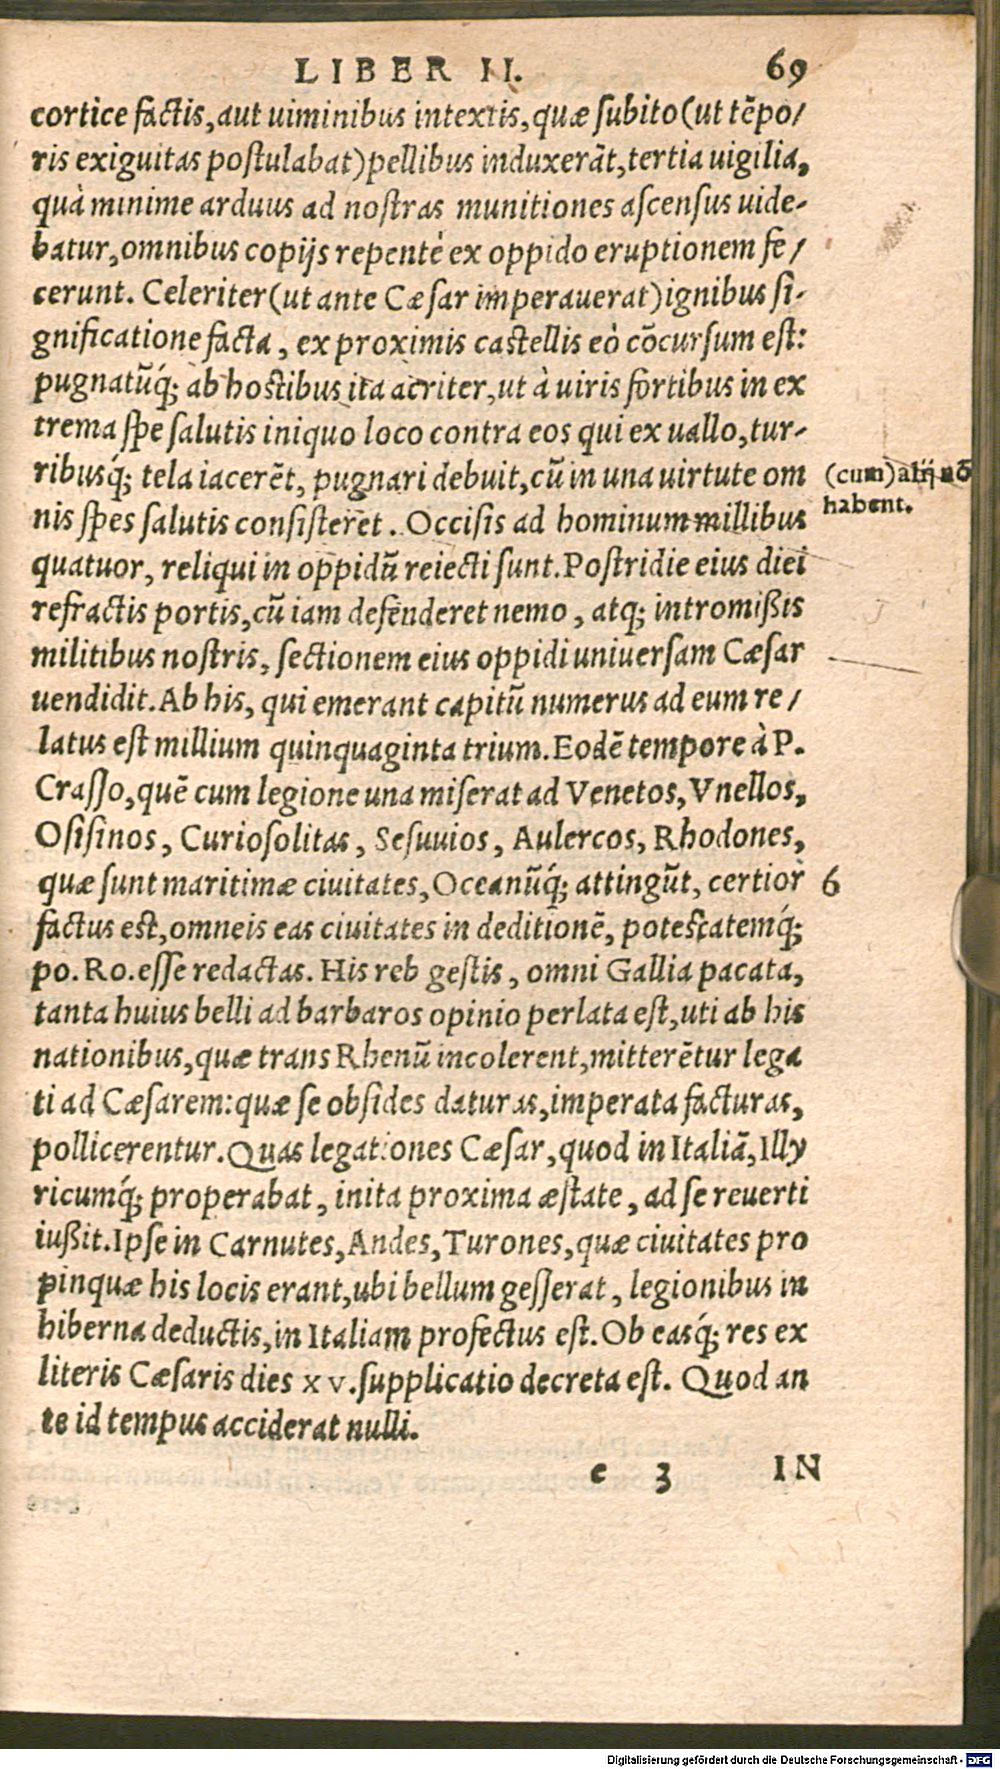 LIBER II. 69
cortice factis, aut uiminibus intextis, quæ subito (ut tēpo/
ris exiguitas postulabat) pellibus induxerāt, tertia uigilia,
quà minime arduus ad nostras munitiones ascensus uide-
batur, omnibus copijs repentè ex oppido eruptionem fe/
cerunt. Celeriter (ut ante Cæsar imperauerat) ignibus si-
gnificatione facta, ex proximis castellis eò cōcursum est:
pugnatūq́; ab hostibus ita acriter, ut à uiris fortibus in ex
trema spe salutis iniquo loco contra eos qui ex uallo, tur-
ribusq́; tela iacerēt, pugnari debuit, cū in una uirtute om
(cum) alij nō
nis spes salutis consisteret. Occisis ad hominum millibus
habent.
quatuor, reliqui in oppidū reiecti sunt. Postridie eius diei
refractis portis, cū iam defenderet nemo, atq; intromißis
militibus nostris, sectionem eius oppidi uniuersam Cæsar
uendidit. Ab his, qui emerant capitū numerus ad eum re/
latus est millium quinquaginta trium. Eodē tempore à P.
Crasso, quē cum legione una miserat ad Venetos, Vnellos,
Osisinos, Curiosolitas, Sesuuios, Aulercos, Rhodones,
quæ sunt maritimæ ciuitates, Oceanūq́; attingūt, certior 6
factus est, omneis eas ciuitates in deditionē, potestatemq́;
po. Ro. esse redactas. His reb gestis, omni Gallia pacata,
tanta huius belli ad barbaros opinio perlata est, uti ab his
nationibus, quæ trans Rhenū incolerent, mitterētur lega
ti ad Cæsarem: quæ se obsides daturas, imperata facturas,
pollicerentur. Quas legationes Cæsar, quod in Italiā, Illy
ricumq́; properabat, inita proxima æstate, ad se reuerti
iußit. Ipse in Carnutes, Andes, Turones, quæ ciuitates pro
pinquæ his locis erant, ubi bellum gesserat, legionibus in
hiberna deductis, in Italiam profectus est. Ob easq́; res ex
literis Cæsaris dies xv. supplicatio decreta est. Quod an
te id tempus acciderat nulli.
e 3 IN
Digitalisierung gefördert durch die Deutsche Forschungsgemeinschaft - DFG